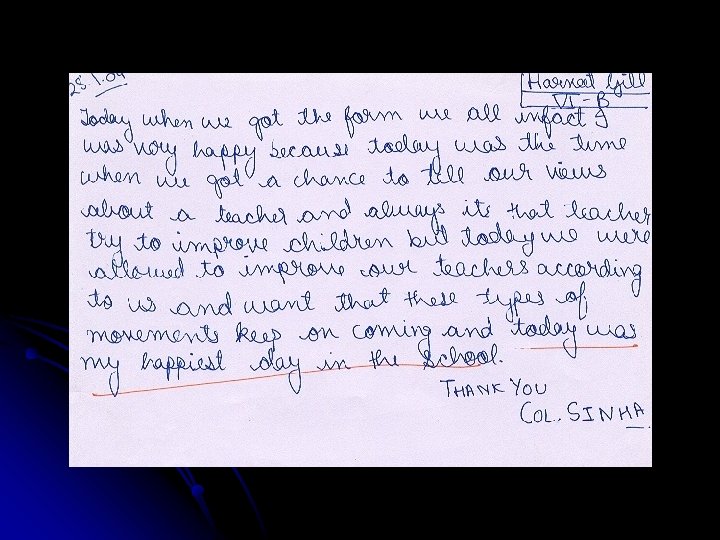 28.1.09
Harneet Gill
VI-B
Today when we got the form we all infact I
was very happy because today was the time
when we got a chance to tell our views
about a teacher and always its that teacher
try to improve children but today we were
allowed to improve our teachers according
to us and want that these types of
movements keep on coming and today was
my happiest day in the school.
THANK YOU
COL. SINHA